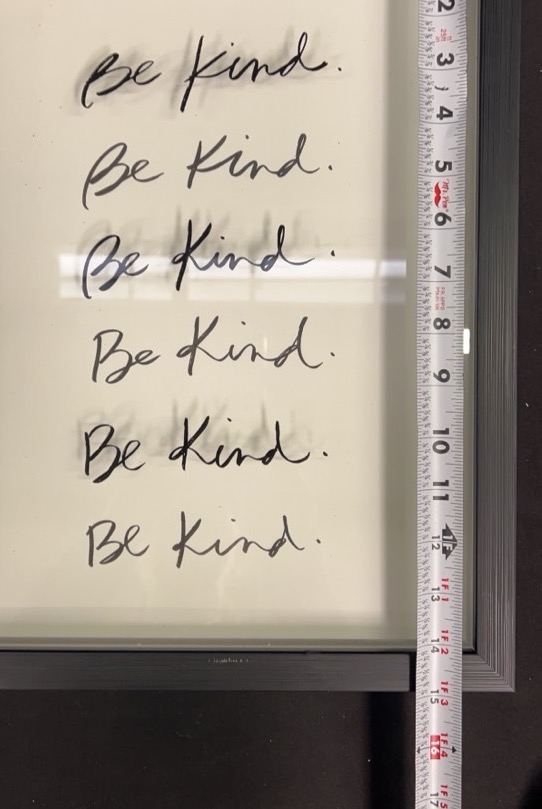 Be Kind.
Be Kind.
Be Kind.
Be Kind.
Be Kind.
Be Kind.
2
3
4
5
6
7
8
9
10
11
12
1F 1
13
1F 2
14
1F 3
15
1F 4
16
1F 5
17